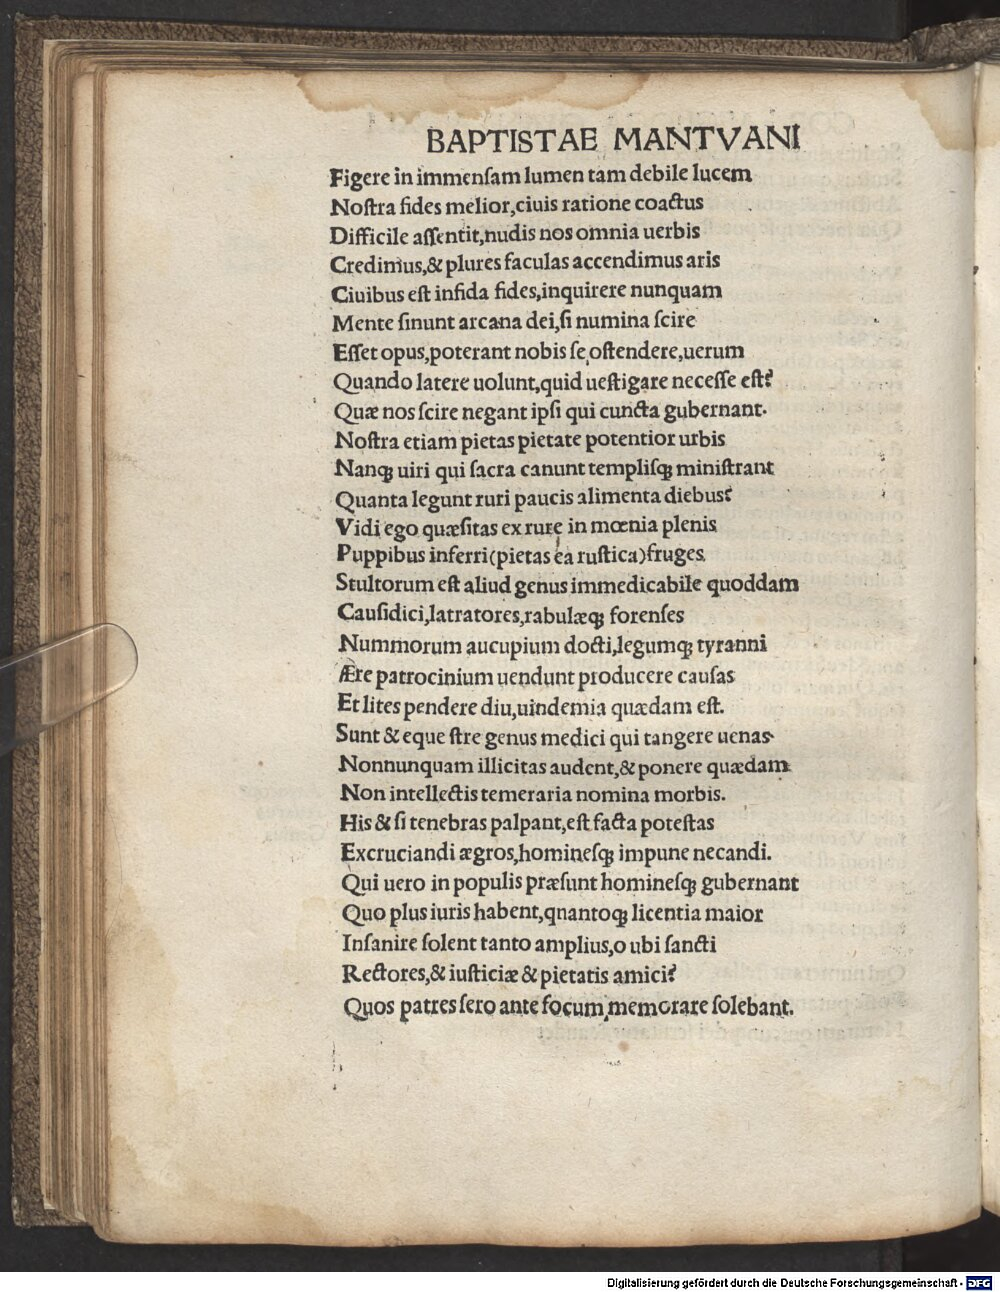 BAPTISTAE MANTVANI
Figere in immenſam lumen tam debile lucem
Noſtra fides melior,ciuis ratione coactus
Difficile aſſentit,nudis nos omnia uerbis
Credimus,& plures faculas accendimus aris
Ciuibus eſt infida fides,inquirere nunquam
Mente ſinunt arcana dei,ſi numina ſcire
Eſſet opus,poterant nobis ſe oſtendere,uerum
Quando latere uolunt,quid ueſtigare neceſſe eſt?
Quæ nos ſcire negant ipſi qui cuncta gubernant.
Noſtra etiam pietas pietate potentior urbis
Nanqꝫ uiri qui ſacra canunt templiſqꝫ miniſtrant
Quanta legunt ruri paucis alimenta diebus?
Vidi ego quæſitas ex rure in mœnia plenis
Puppibus inferri(pietas ea ruſtica)fruges
Stultorum eſt aliud genus immedicabile quoddam
Cauſidici,latratores,rabulæqꝫ forenſes
Nummorum aucupium docti,legumqꝫ tyranni
Ære patrocinium uendunt producere cauſas
Et lites pendere diu,uindemia quædam eſt.
Sunt & eque ſtre genus medici qui tangere uenas
Nonnunquam illicitas audent,& ponere quædam
Non intellectis temeraria nomina morbis.
His & ſi tenebras palpant,eſt facta poteſtas
Excruciandi ægros,homineſqꝫ impune necandi.
Qui uero in populis præſunt homineſqꝫ gubernant
Quo plus iuris habent,qnantoqꝫ licentia maior
Inſanire ſolent tanto amplius,o ubi ſancti
Rectores,& iuſticiæ & pietatis amici?
Quos patres ſero ante focum memorare ſolebant.
Digitalisierung gefördert durch die Deutsche Forschungsgemeinschaft - DFG